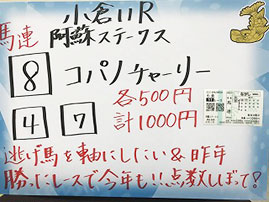 小倉11R
馬連 阿蘇ステークス
8 コパノチャーリー
4 7 各500円
計1000円
逃げ馬を軸にしたい&昨年
勝ったレースで今年も!!点数しぼって?